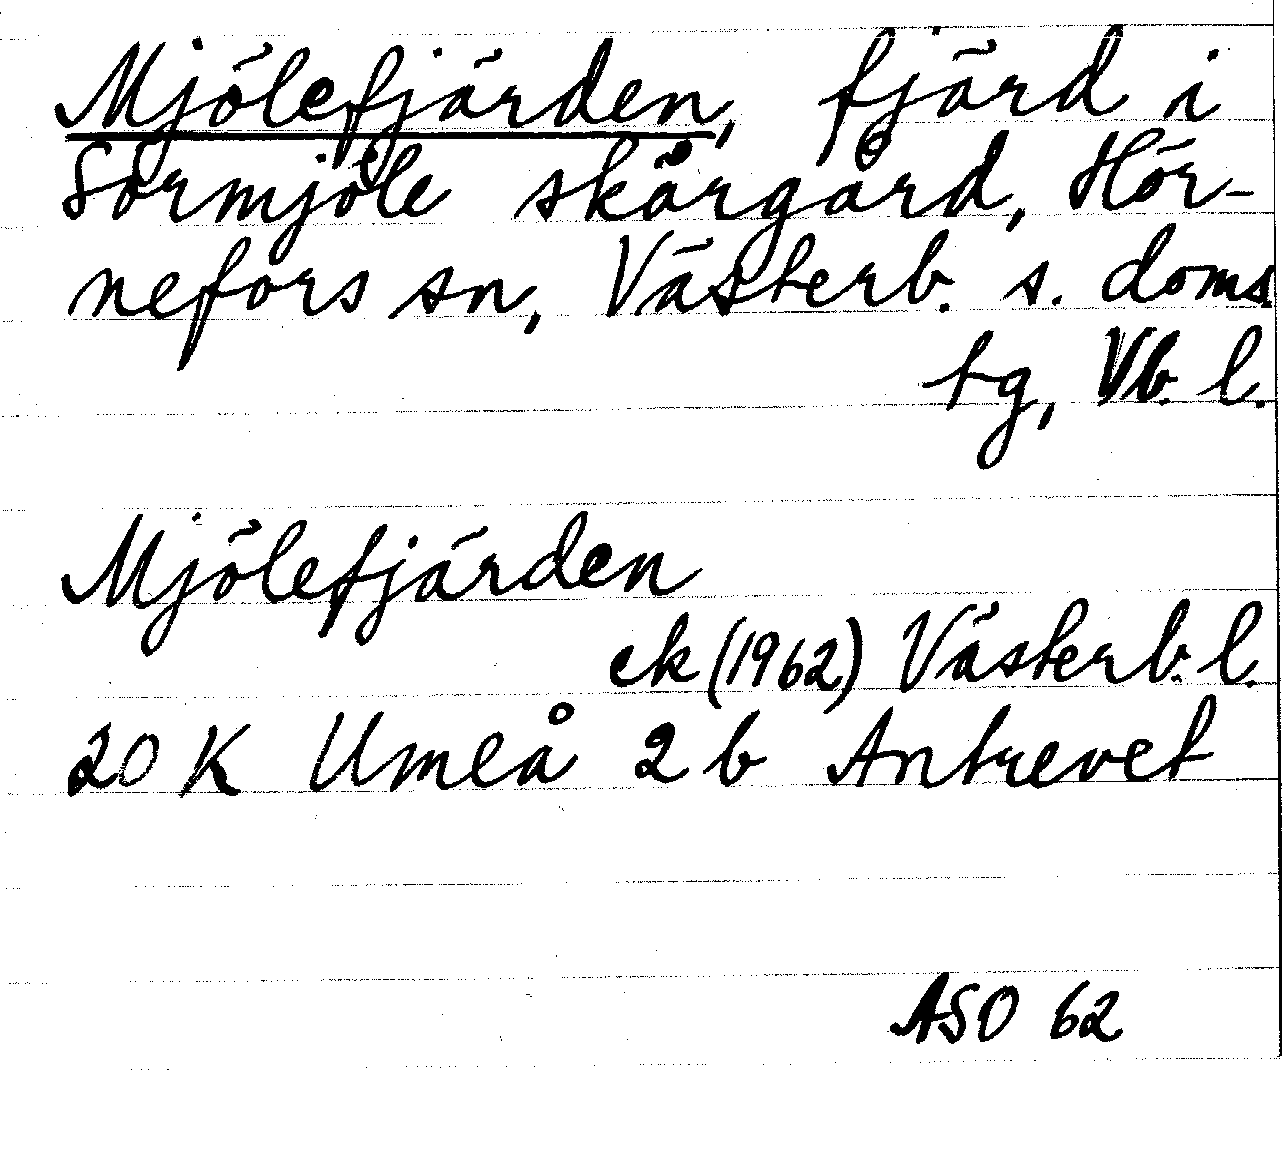 Mjölefjärden, fjärd i
Sörmjöle skärgård, Hör-
nefors sn, Västerb. s. doms
tg, Vb. l.
Mjölefjärden
ek (1962) Västerb. l.
20 K Umeå 2 b Antrevet
ASO 62